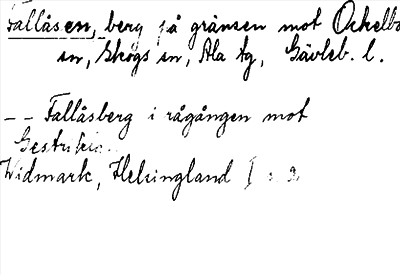 Fallåsen, berg på gränsen mot Ockelbo
sn, Skogs sn, Ala tg, Gävleb. l.
-- Fallåsberg i rågången mot
Gestrikl
Widmark, Helsingland I